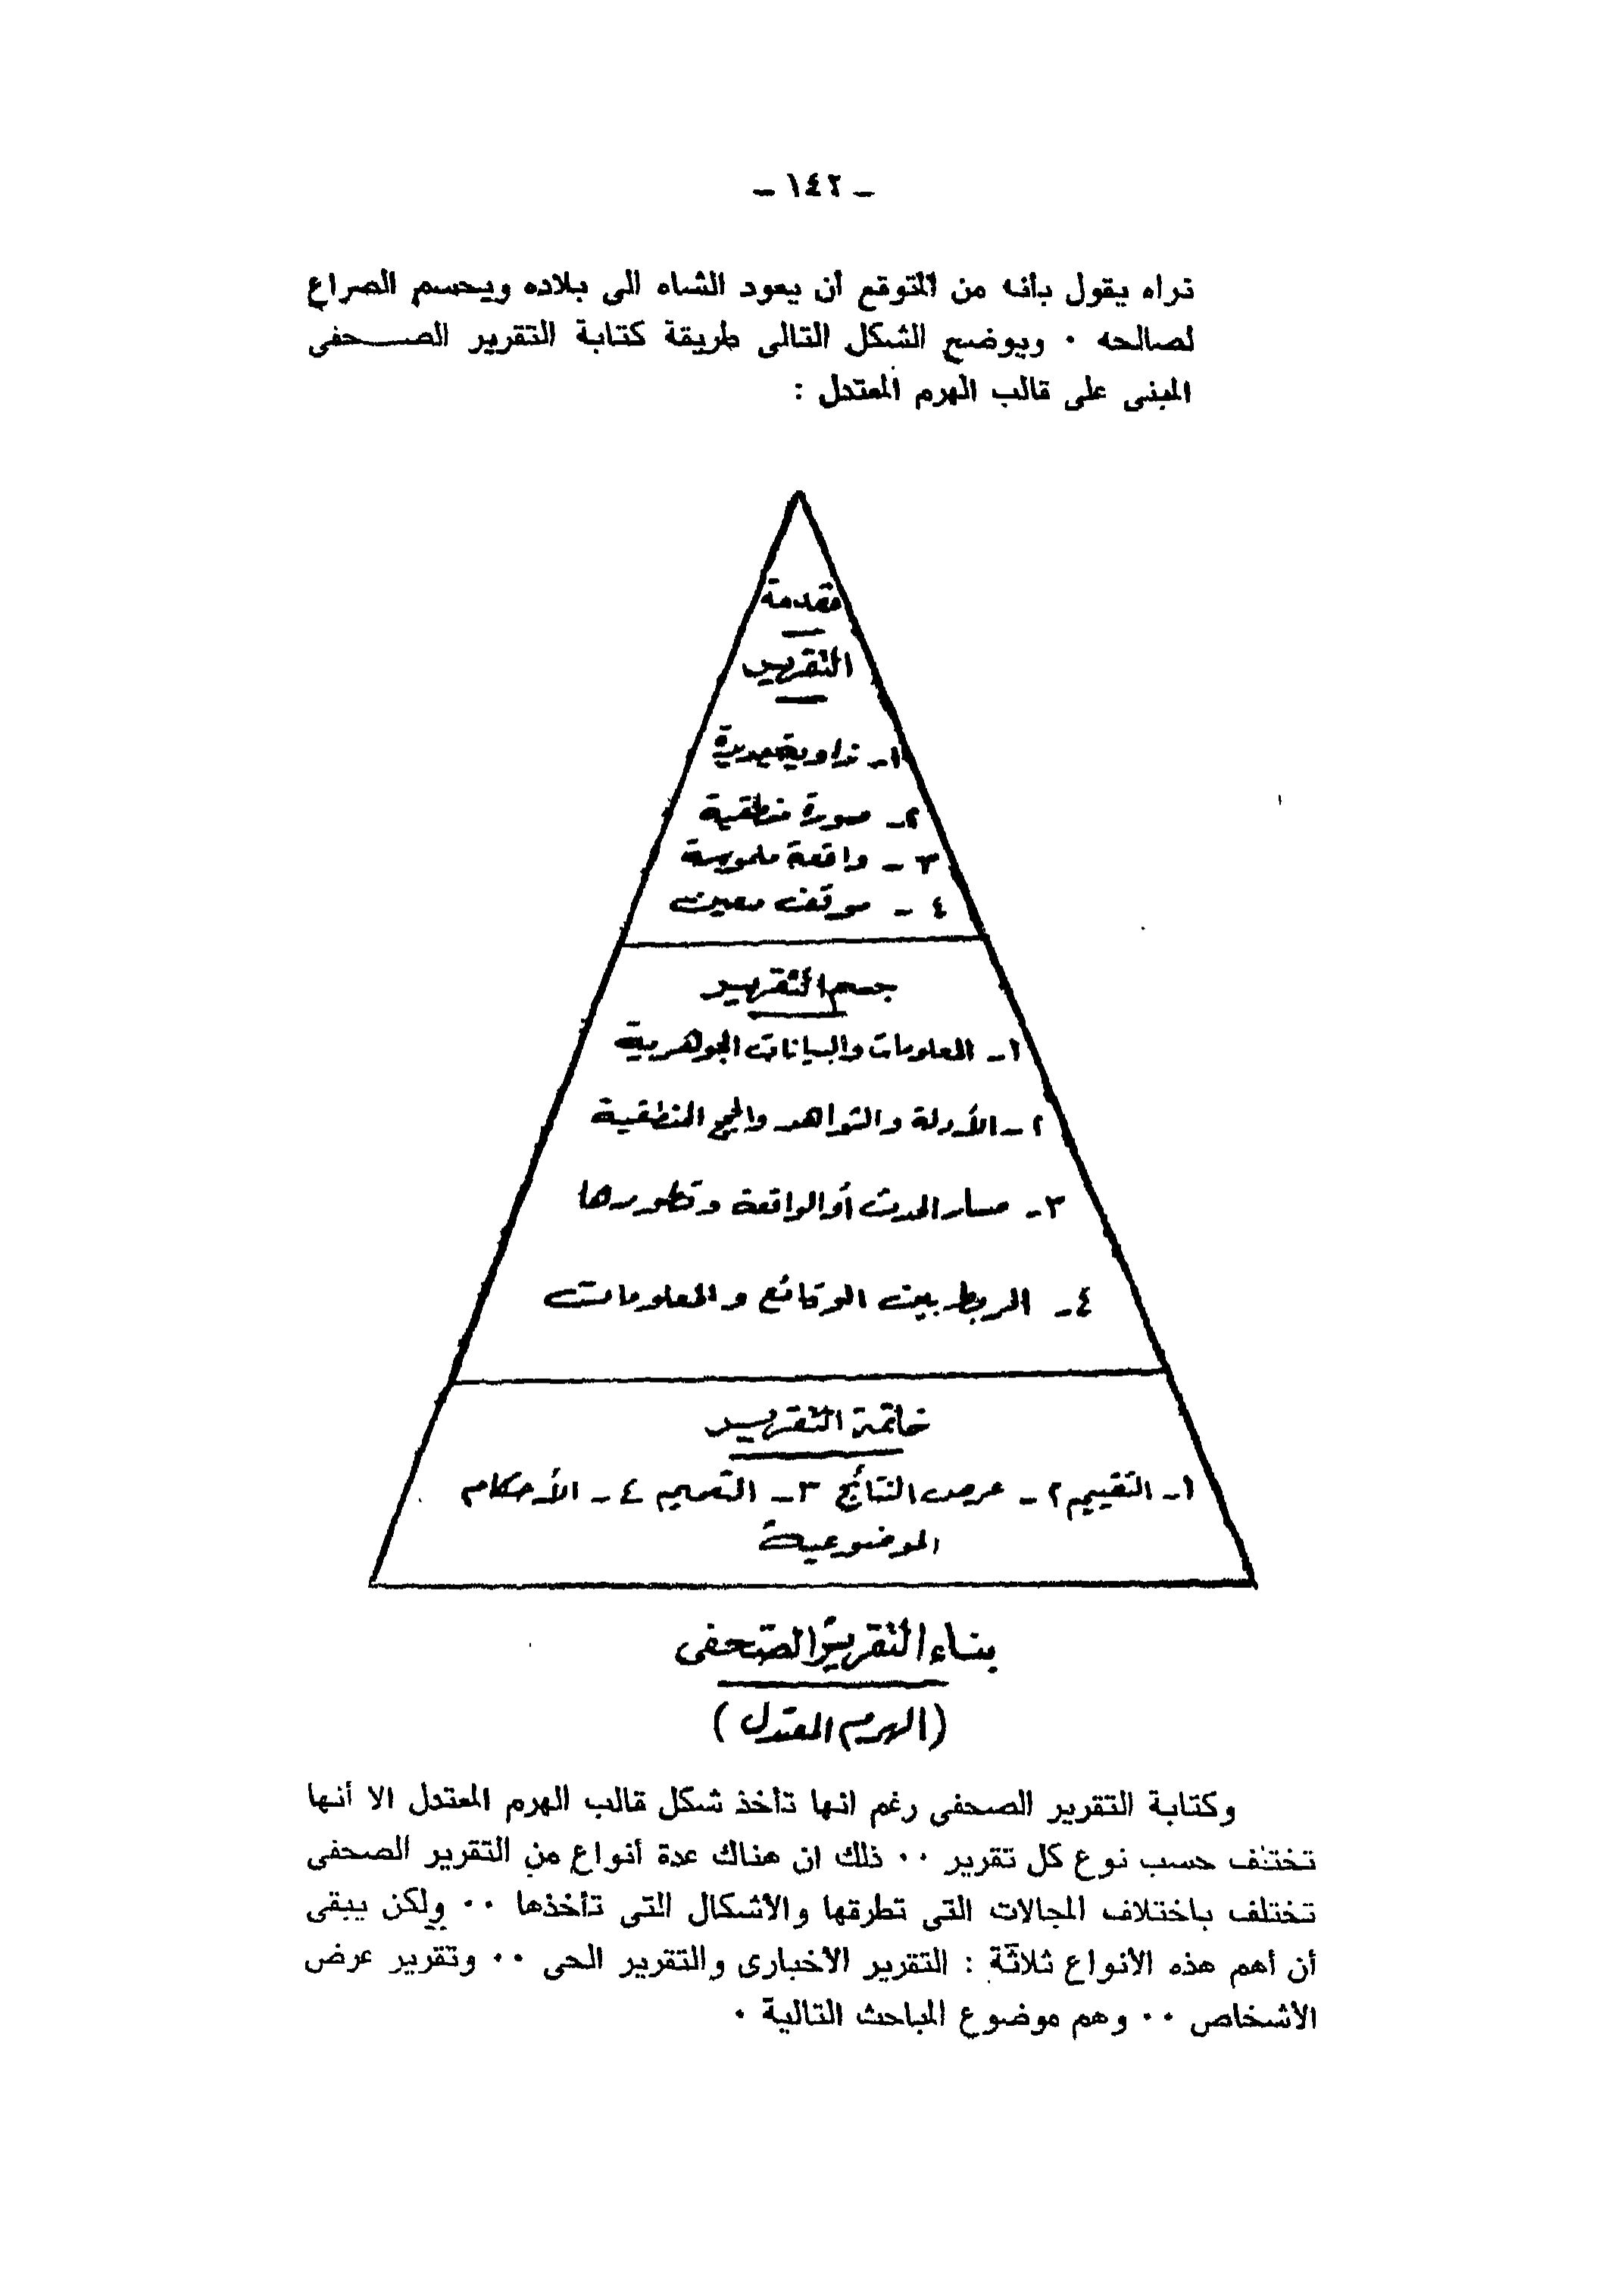 ـ ١٤٢ ـ
تراه يقول بأنه من المتوقع أن يعود الشاه الى بلاده ويحسم الصراع
لصالحه ٠ ويوضح الشكل التالى طريقة كتابة التقرير الصـــحفى
المبنى على قالب الهرم المعتدل :
مقدمة
التقرير
١ـ زاوية جديدة
٢ـ صورة منطقية
٣ـ واقعة ملموسة
٤ـ موقف معين
جسم التقرير
١ـ المعلومات والبيانات الجوهرية
٢ـ الأدلة والشواهد والحجج المنطقية
٣ـ مسار الحدث أو الواقعة وتطورها
٤ـ الربط بين الوقائع والمعلومات
خاتمة التقرير
١ـ التقييم ٢ـ عرض النتائج ٣ـ التعميم ٤ـ الأحكام
الموضوعية
بناء التقرير الصحفى
(الهرم المعتدل)
وكتابة التقرير الصحفى رغم انها تأخذ شكل قالب الهرم المعتدل الا أنها
تختلف حسب نوع كل تقرير ٠٠ ذلك ان هناك عدة أنواع من التقرير الصحفى
تختلف باختلاف المجالات التى تطرقها والأشكال التى تأخذها ٠٠ ولكن يبقى
أن أهم هذه الأنواع ثلاثة : التقرير الأخبارى والتقرير الحى ٠٠ وتقرير عرض
الأشخاص ٠٠ وهم موضوع المباحث التالية ٠